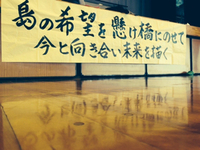 島の希望を懸け橋にのせて
今と向き合い未来を描く